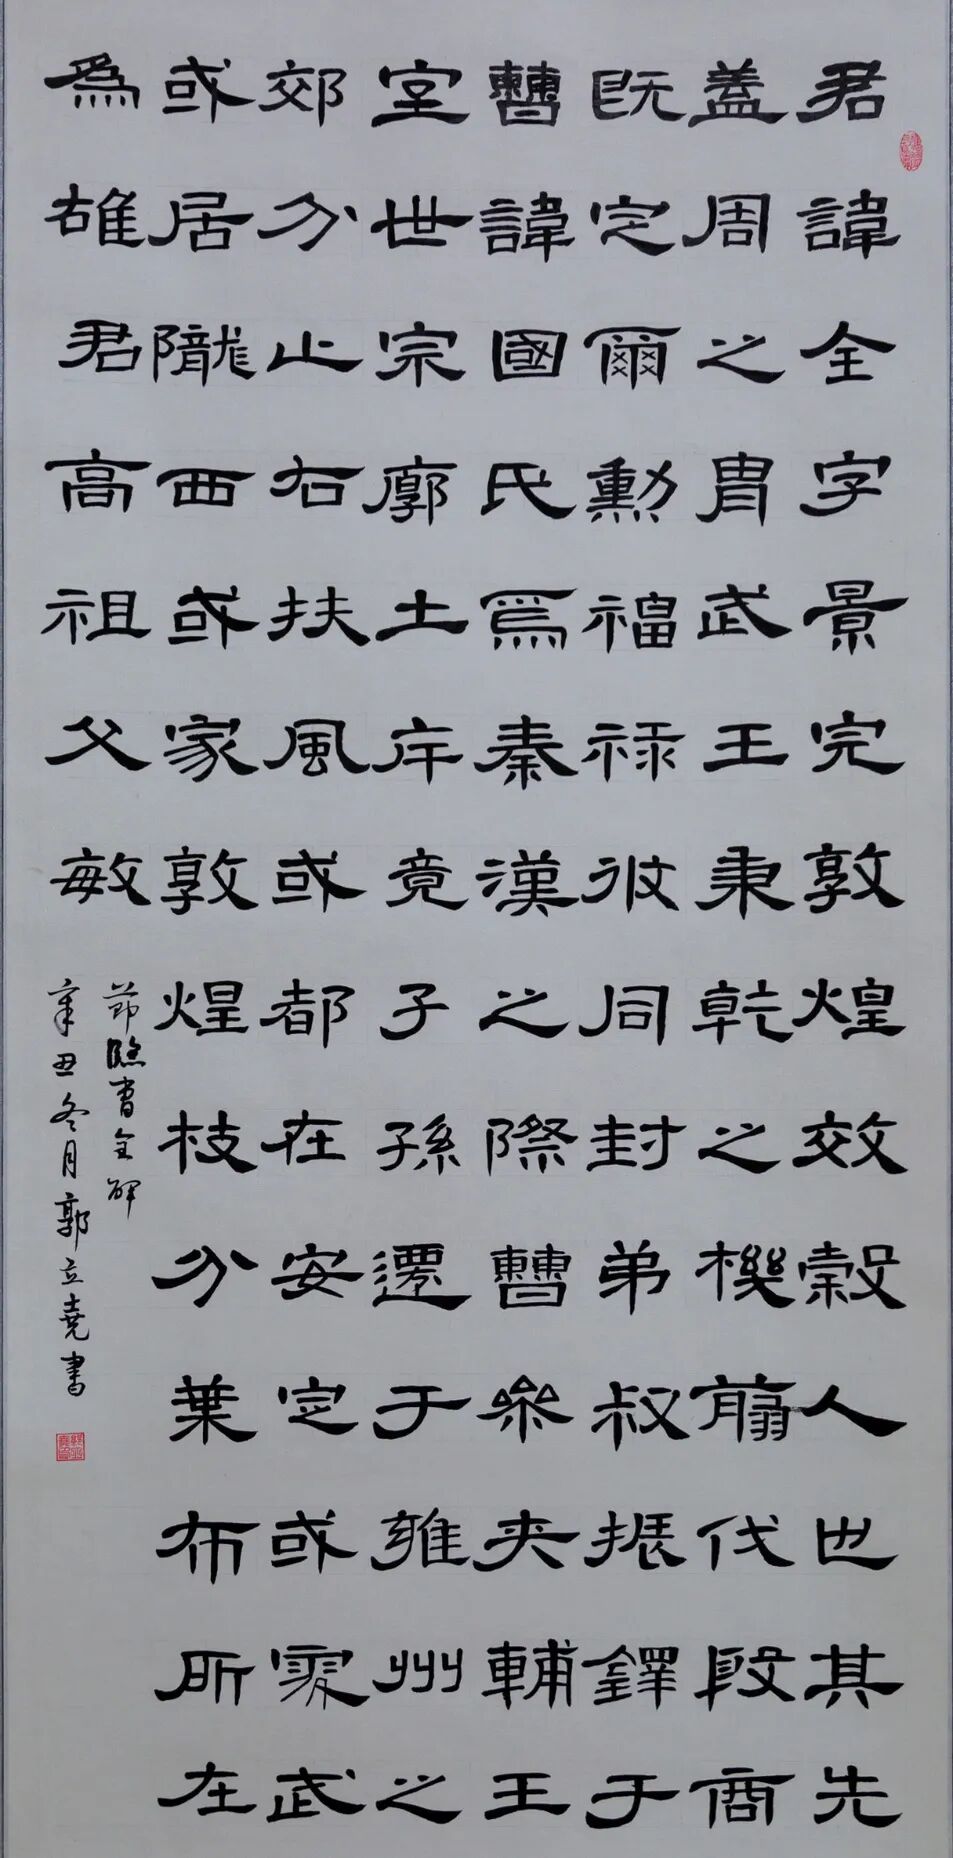 君諱全字景完敦煌效穀人也其先
蓋周之胄武王秉乾之機翦伐殷商
既定爾勳福祿攸同封弟叔振鐸于
曹諱國氏焉秦漢之際曹參夾輔王
室世宗廓土斥竟子孫遷于雍州之
郊分止右扶風或都在安定或處武
或居隴西或家敦煌枝分葉布所在
為雄君高祖父敏
節臨曹全碑
辛丑冬月郭立堯書